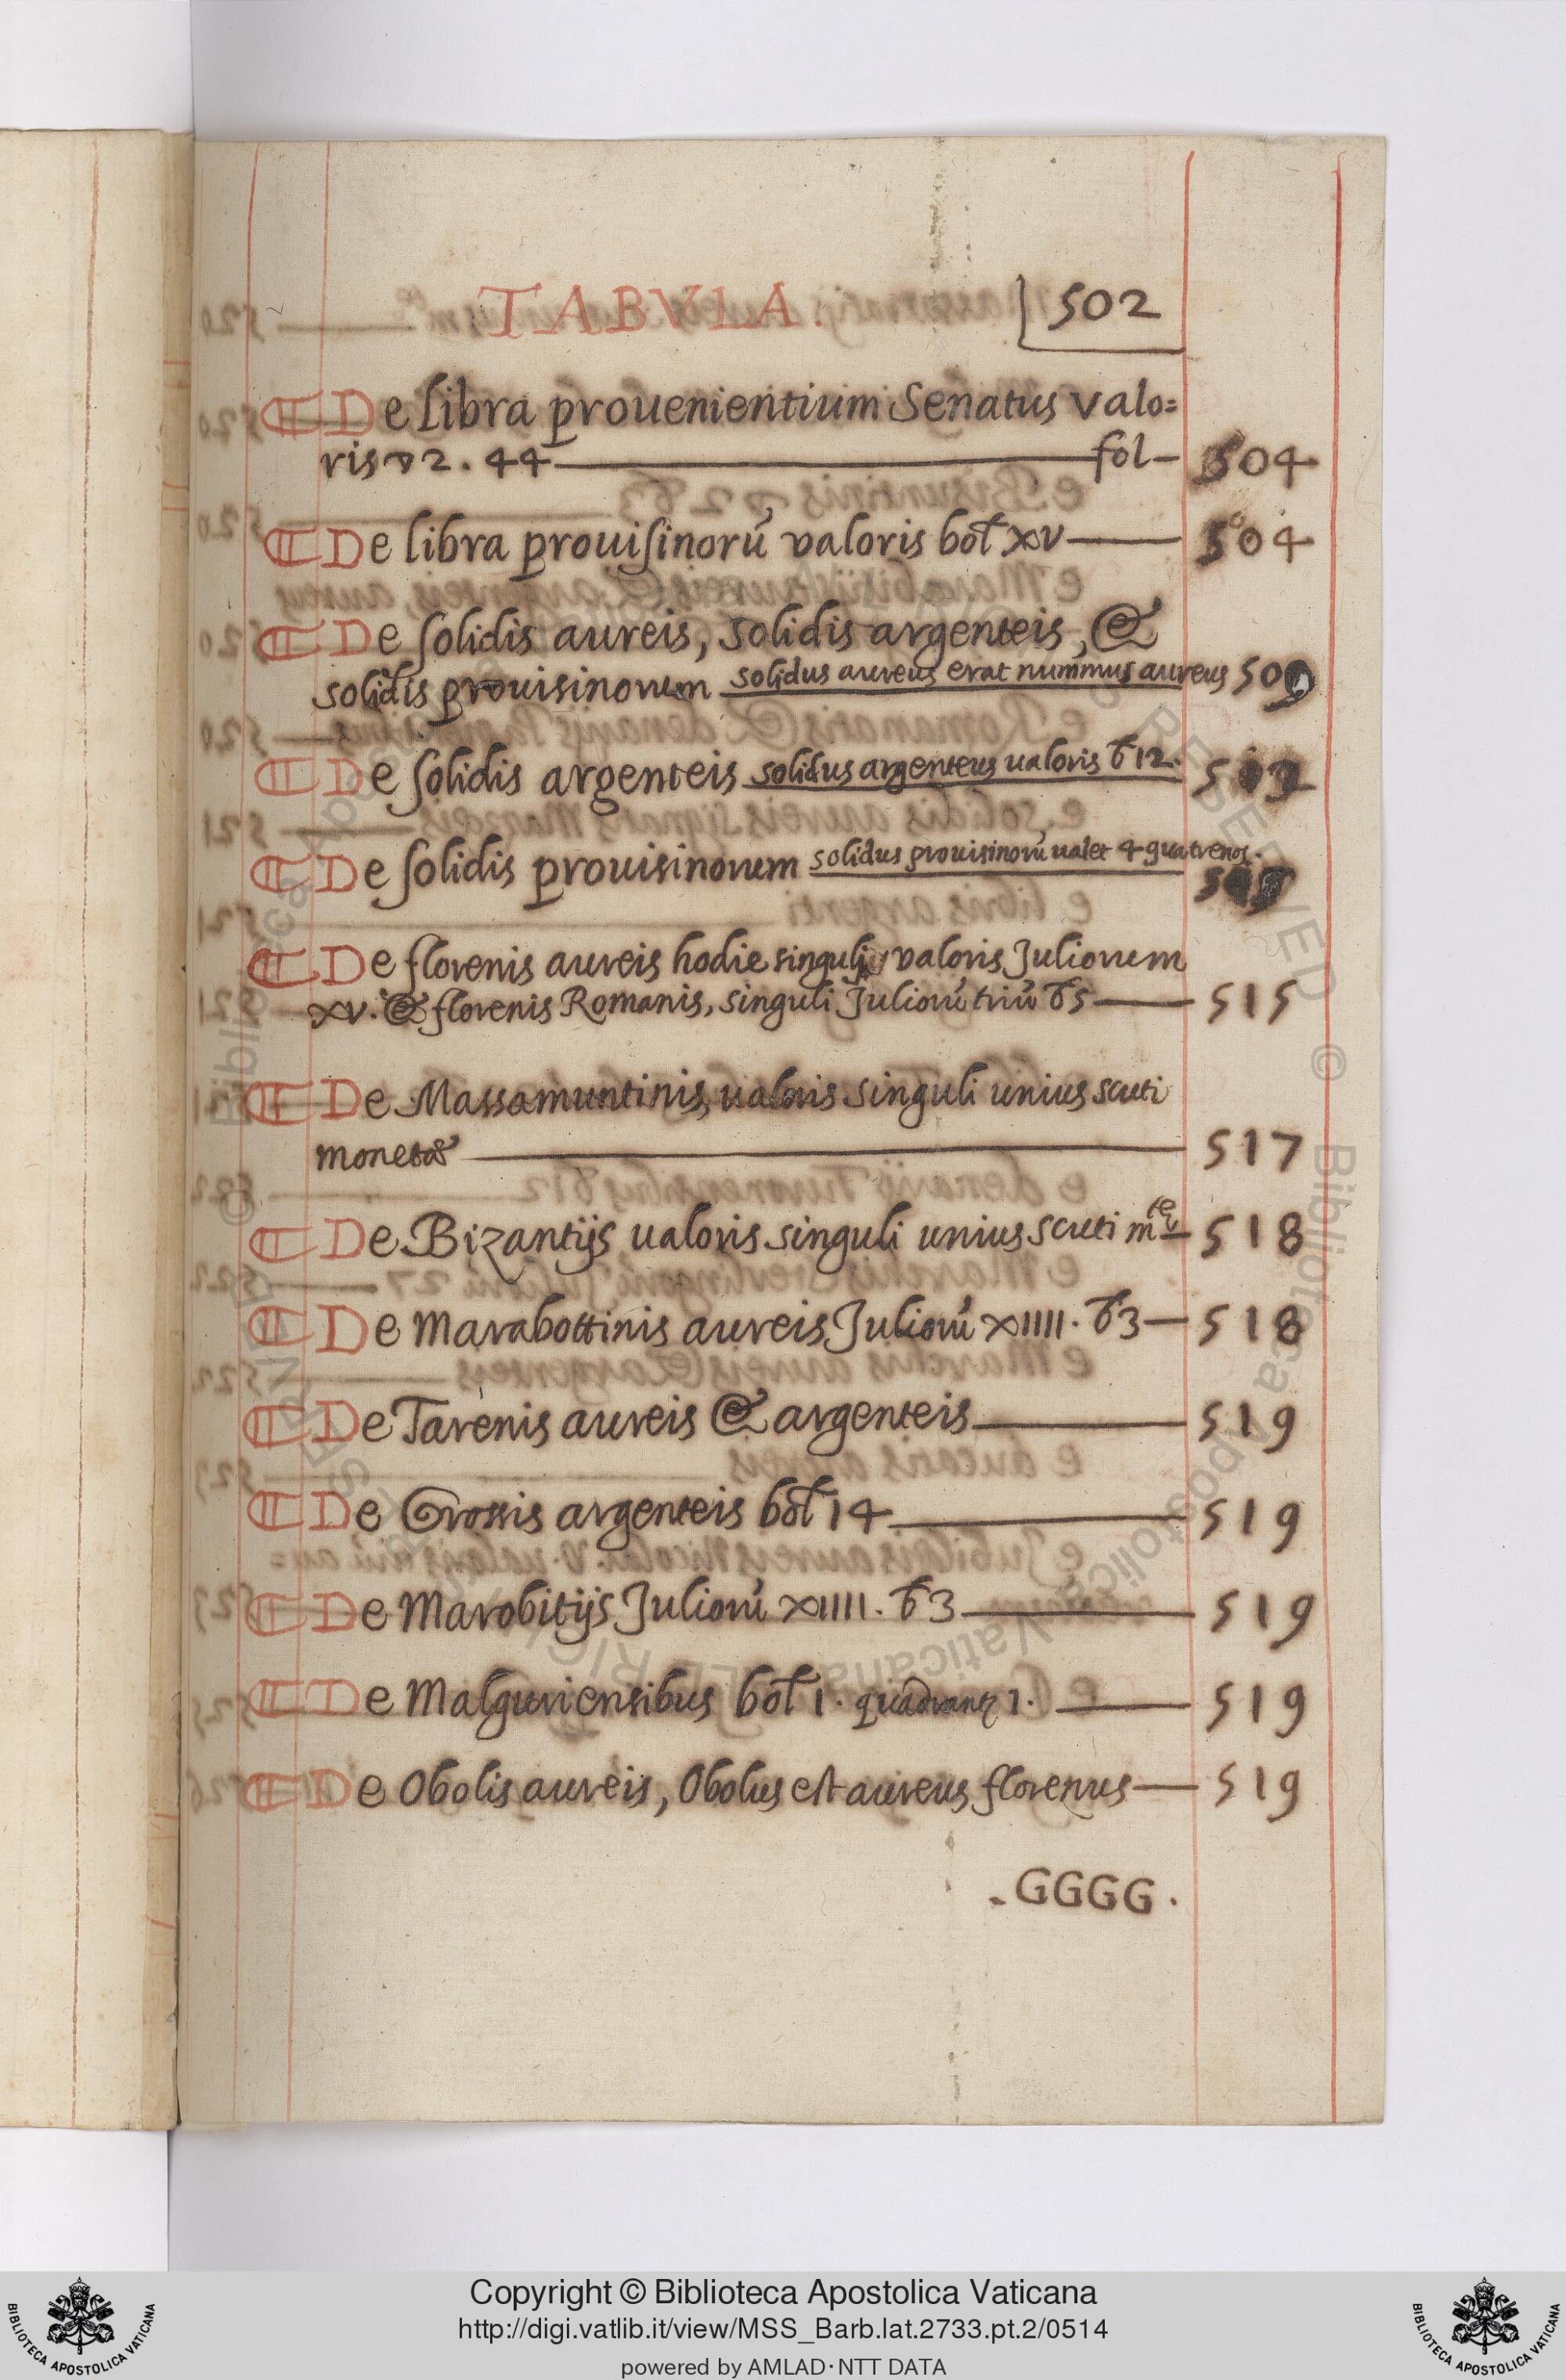 TABVLA. 502
¶ De libra prouenientium Senatus valo=
ris ▽ 2. 44 fol 504
¶ De libra prouisinorũ valoris bol̃ xv 504
¶ De solidis aureis, solidis argenteis, &
solidis prouisinorum solidus aureus erat nummus aureus 509
¶ De solidis argenteis solidus argenteus ualoris ƀ 12.
¶ De solidis prouisinorum solidus prouisinorũ ualet 4 quatrenos.
¶ De florenis aureis hodie singuli valoris Juliorum
xv. & florenis Romanis, singuli Juliorũ triũ ƀ 5 515
¶ De Massamuntinis, ualoris singuli unius scuti
monetæ 517
¶ De Bizantijs ualoris singuli unius scuti m.te 518
¶ De Marabottinis aureis Juliorũ XIIII. ƀ 3 518
¶ De Tarenis aureis & argenteis 519
¶ De Grossis argenteis bol̃ 14 519
¶ De Marobitijs Juliorũ XIIII. ƀ 3 519
¶ De Malguriensibus bol̃ 1. quadrantz 1. 519
¶ De Obolis aureis, Obolus est aureus florenus 519
. GGGG .
Copyright © Biblioteca Apostolica Vaticana
http://digi.vatlib.it/view/MSS_Barb.lat.2733.pt.2/0514
powered by AMLAD·NTT DATA
BIBLIOTECA APOSTOLICA VATICANA
BIBLIOTECA APOSTOLICA VATICANA